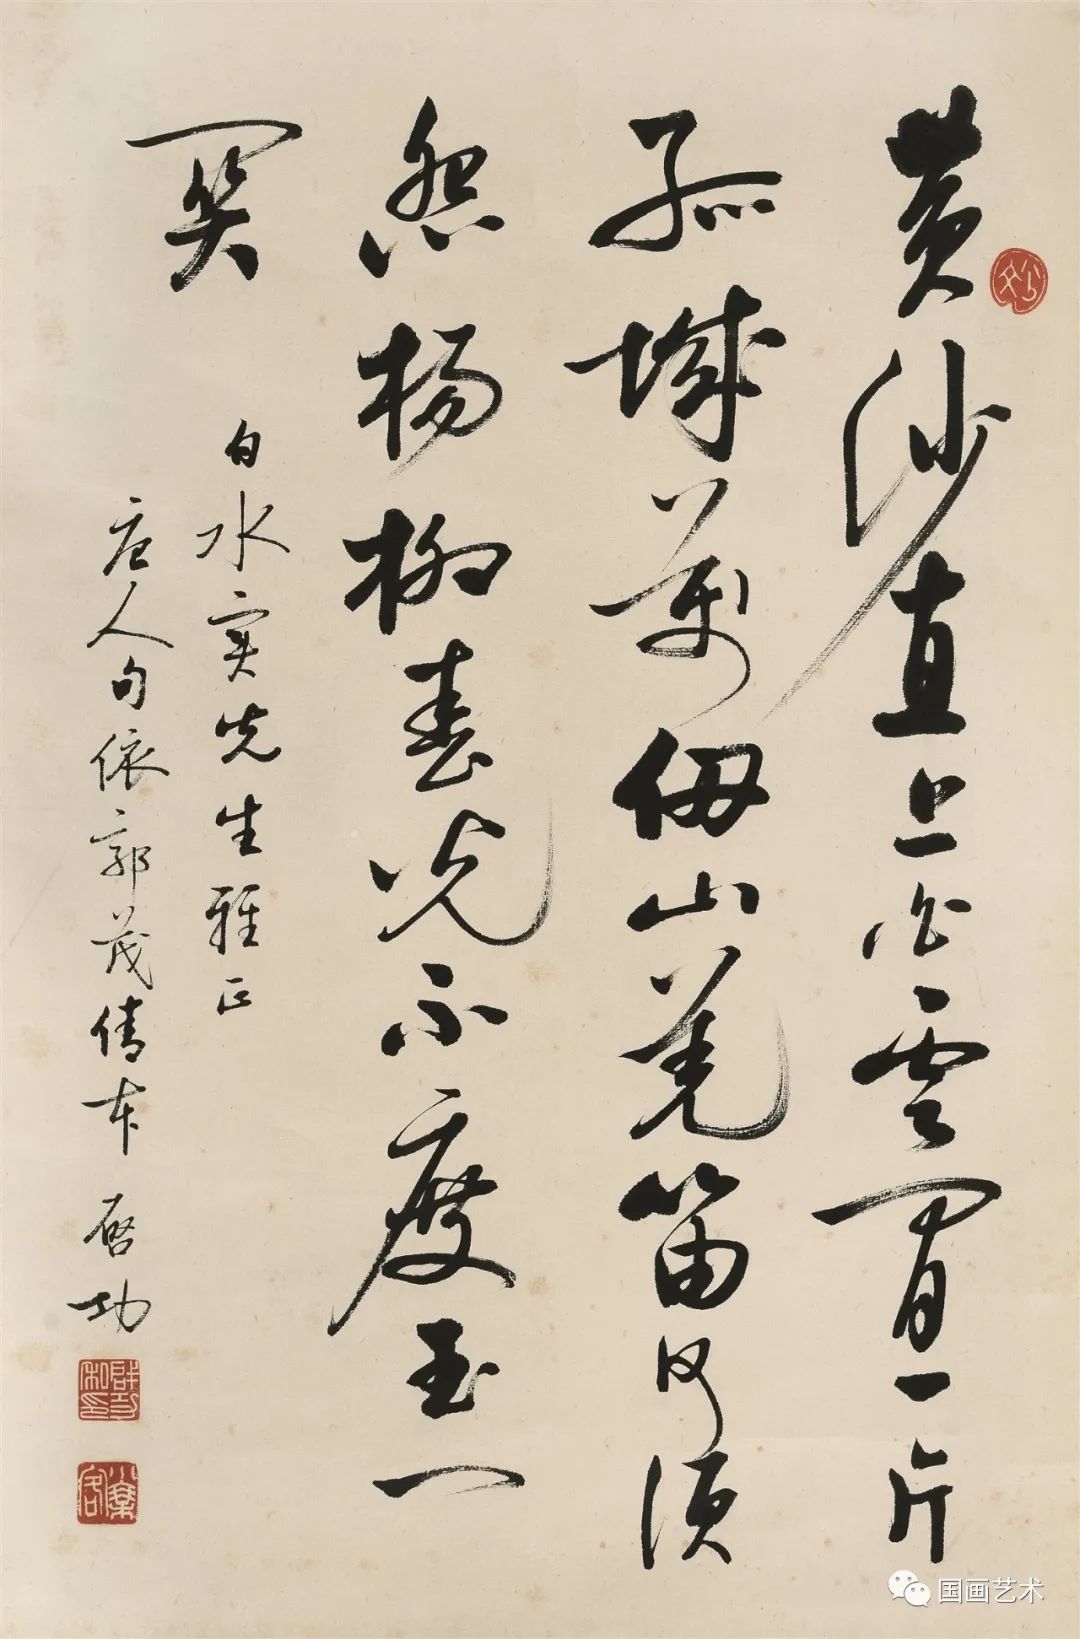 黄沙直上白雲間一片
孤城萬仞山羌笛何須
怨楊柳春光不度玉門
關
白水実先生雅正
唐人句依郭茂倩本 啓功
国画艺术